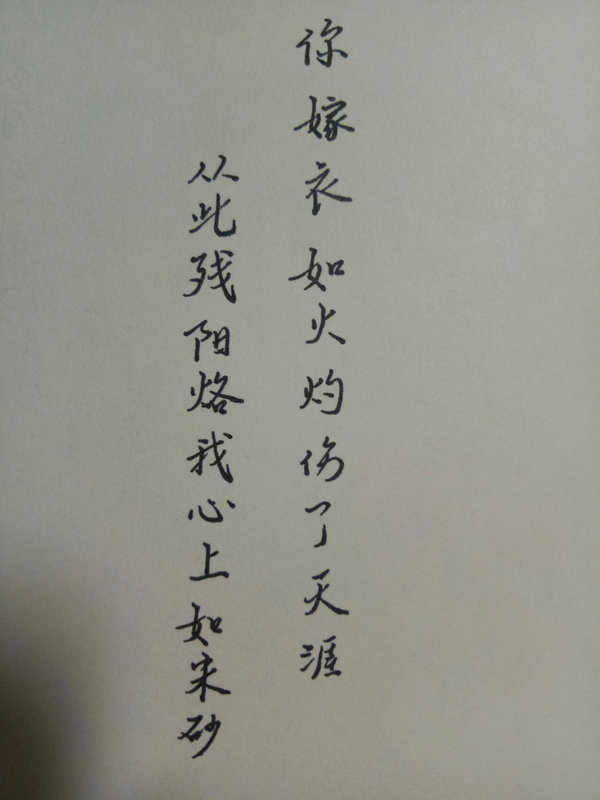 你嫁衣如火灼伤了天涯
从此残阳烙我心上如朱砂